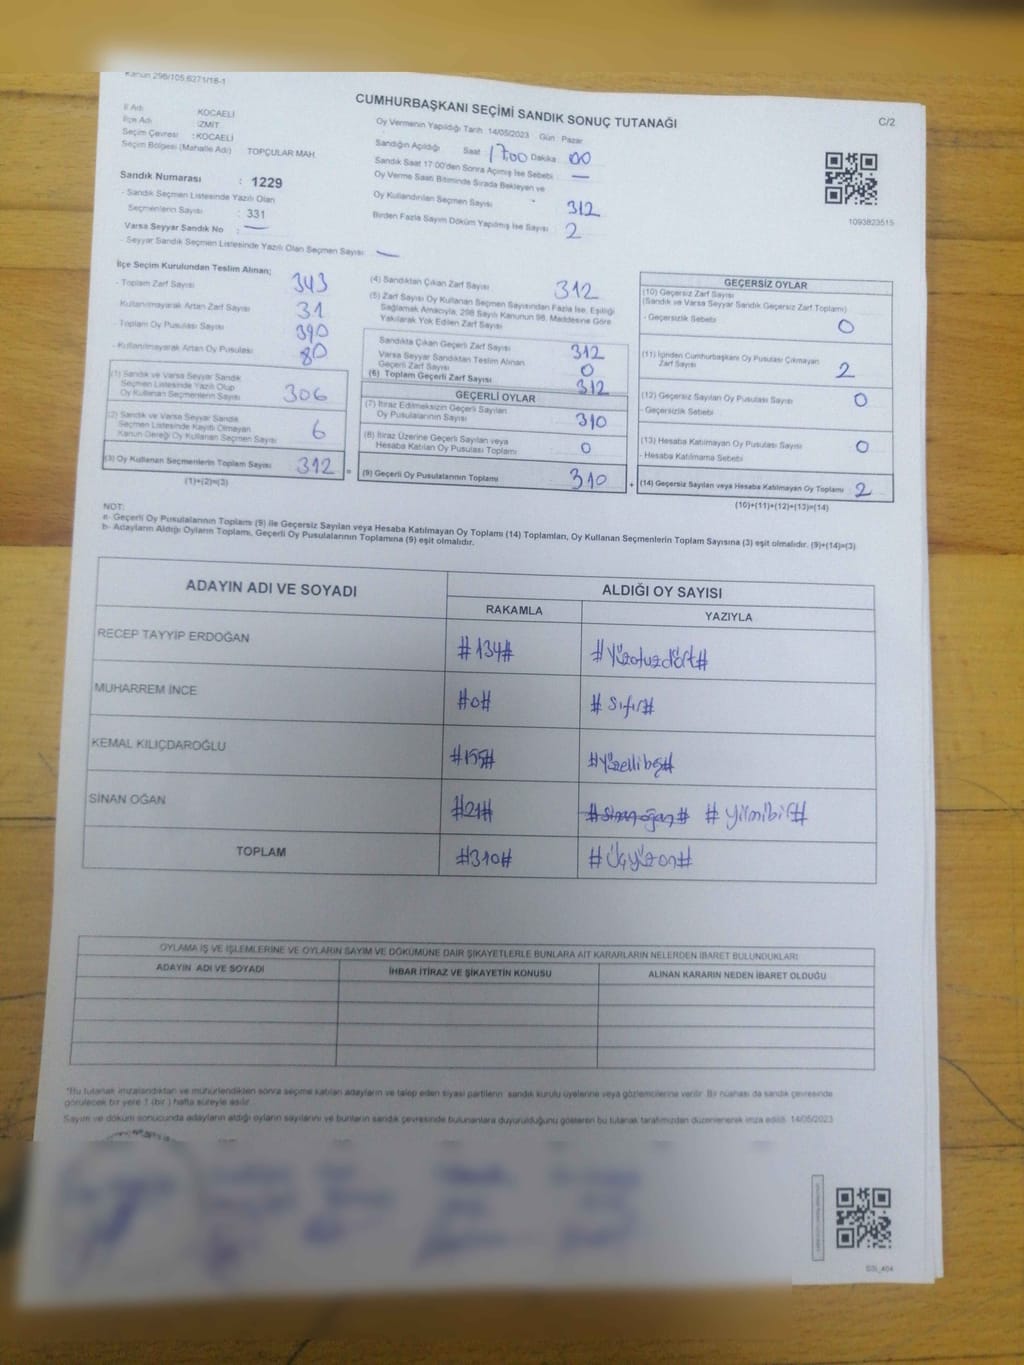 Kanun 298/105,6271/18-1
CUMHURBAŞKANI SEÇİMİ SANDIK SONUÇ TUTANAĞI
C/2
İl Adı : KOCAELİ
İlçe Adı : İZMİT
Seçim Çevresi : KOCAELİ
Seçim Bölgesi (Mahalle Adı) TOPÇULAR MAH.
Sandık Numarası : 1229
- Sandık Seçmen Listesinde Yazılı Olan
Seçmenlerin Sayısı : 331
Varsa Seyyar Sandık No : —
- Seyyar Sandık Seçmen Listesinde Yazılı Olan Seçmen Sayısı: —
Oy Vermenin Yapıldığı Tarih :14/05/2023 Gün : Pazar
Sandığın Açıldığı Saat : 1700 Dakika : 00
Sandık Saat 17:00'den Sonra Açılmış İse Sebebi : —
Oy Verme Saati Bitiminde Sırada Bekleyen ve
Oy Kullandırılan Seçmen Sayısı : 312
Birden Fazla Sayım Döküm Yapılmış İse Sayısı : 2
1093823515
İlçe Seçim Kurulundan Teslim Alınan;
- Toplam Zarf Sayısı : 343
Kullanılmayarak Artan Zarf Sayısı : 31
- Toplam Oy Pusulası Sayısı : 390
- Kullanılmayarak Artan Oy Pusulası : 80
(1) Sandık ve Varsa Seyyar Sandık
Seçmen Listesinde Yazılı Olup
Oy Kullanan Seçmenlerin Sayısı : 306
(2) Sandık ve Varsa Seyyar Sandık
Seçmen Listesinde Kayıtlı Olmayan
Kanun Gereği Oy Kullanan Seçmen Sayısı : 6
(3) Oy Kullanan Seçmenlerin Toplam Sayısı : 312
(1)+(2)=(3)
(4) Sandıktan Çıkan Zarf Sayısı : 312
(5) Zarf Sayısı Oy Kullanan Seçmen Sayısından Fazla İse, Eşitliği
Sağlamak Amacıyla, 298 Sayılı Kanunun 98. Maddesine Göre
Yakılarak Yok Edilen Zarf Sayısı :
Sandıkta Çıkan Geçerli Zarf Sayısı 312
Varsa Seyyar Sandıktan Teslim Alınan
Geçerli Zarf Sayısı 0
(6) Toplam Geçerli Zarf Sayısı 312
GEÇERLİ OYLAR
(7) İtiraz Edilmeksizin Geçerli Sayılan
Oy Pusulalarının Sayısı : 310
(8) İtiraz Üzerine Geçerli Sayılan veya
Hesaba Katılan Oy Pusulası Toplamı 0
= (9) Geçerli Oy Pusulalarının Toplamı : 310 +
GEÇERSİZ OYLAR
(10) Geçersiz Zarf Sayısı
(Sandık ve Varsa Seyyar Sandık Geçersiz Zarf Toplamı)
- Geçersizlik Sebebi : 0
(11) İçinden Cumhurbaşkanı Oy Pusulası Çıkmayan
Zarf Sayısı 2
(12) Geçersiz Sayılan Oy Pusulası Sayısı 0
- Geçersizlik Sebebi
(13) Hesaba Katılmayan Oy Pusulası Sayısı 0
- Hesaba Katılmama Sebebi
(14) Geçersiz Sayılan veya Hesaba Katılmayan Oy Toplamı : 2
(10)+(11)+(12)+(13)=(14)
NOT:
a- Geçerli Oy Pusulalarının Toplamı (9) ile Geçersiz Sayılan veya Hesaba Katılmayan Oy Toplamı (14) Toplamları, Oy Kullanan Seçmenlerin Toplam Sayısına (3) eşit olmalıdır. (9)+(14)=(3)
b- Adayların Aldığı Oyların Toplamı, Geçerli Oy Pusulalarının Toplamına (9) eşit olmalıdır.
ADAYIN ADI VE SOYADI
ALDIĞI OY SAYISI
RAKAMLA YAZIYLA
RECEP TAYYİP ERDOĞAN #134# #Yüzotuzdört#
MUHARREM İNCE #0# #Sıfır#
KEMAL KILIÇDAROĞLU #155# #Yüzellibeş#
SİNAN OĞAN #21# #sinan oğan# #Yirmibir#
TOPLAM #310# #Üçyüzon#
OYLAMA İŞ VE İŞLEMLERİNE VE OYLARIN SAYIM VE DÖKÜMÜNE DAİR ŞİKAYETLERLE BUNLARA AİT KARARLARIN NELERDEN İBARET BULUNDUKLARI
ADAYIN ADI VE SOYADI İHBAR İTİRAZ VE ŞİKAYETİN KONUSU ALINAN KARARIN NEDEN İBARET OLDUĞU
*Bu tutanak imzalandıktan ve mühürlendikten sonra seçime katılan adayların ve talep eden siyasi partilerin sandık kurulu üyelerine veya gözlemcilerine verilir. Bir nüshası da sandık çevresinde
görülecek bir yere 1 (bir ) hafta süreyle asılır.
Sayım ve döküm sonucunda adayların aldığı oyların sayılarını ve bunların sandık çevresinde bulunanlara duyurulduğunu gösteren bu tutanak tarafımızdan düzenlenerek imza edildi. 14/05/2023